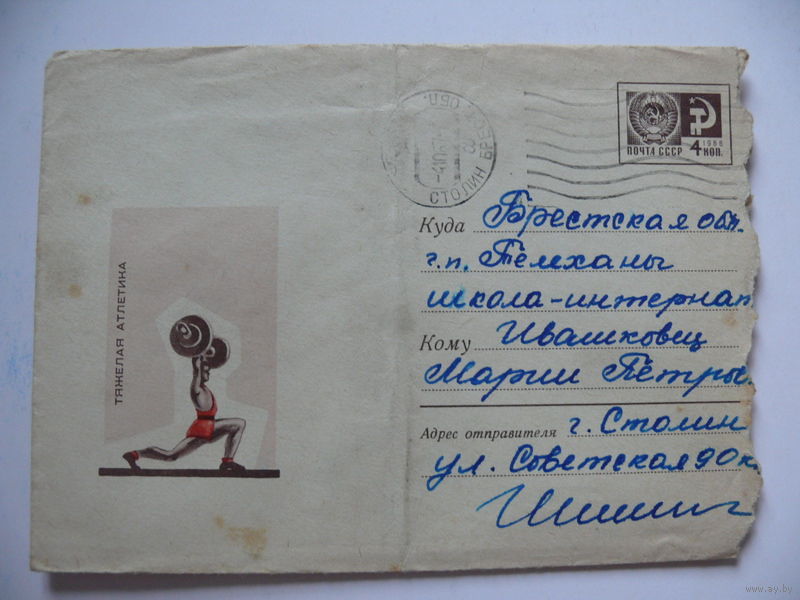 ТЯЖЕЛАЯ АТЛЕТИКА
СТОЛИН БРЕСТ ОБЛ.
-410 6
ПОЧТА СССР
1966
4 КОП.
Куда Брестская обл.
г.п. Телеханы
школа-интернат
Кому Ивашковец
Марии Петры
Адрес отправителя г. Столин
ул. Советская 90 к
www.ay.by